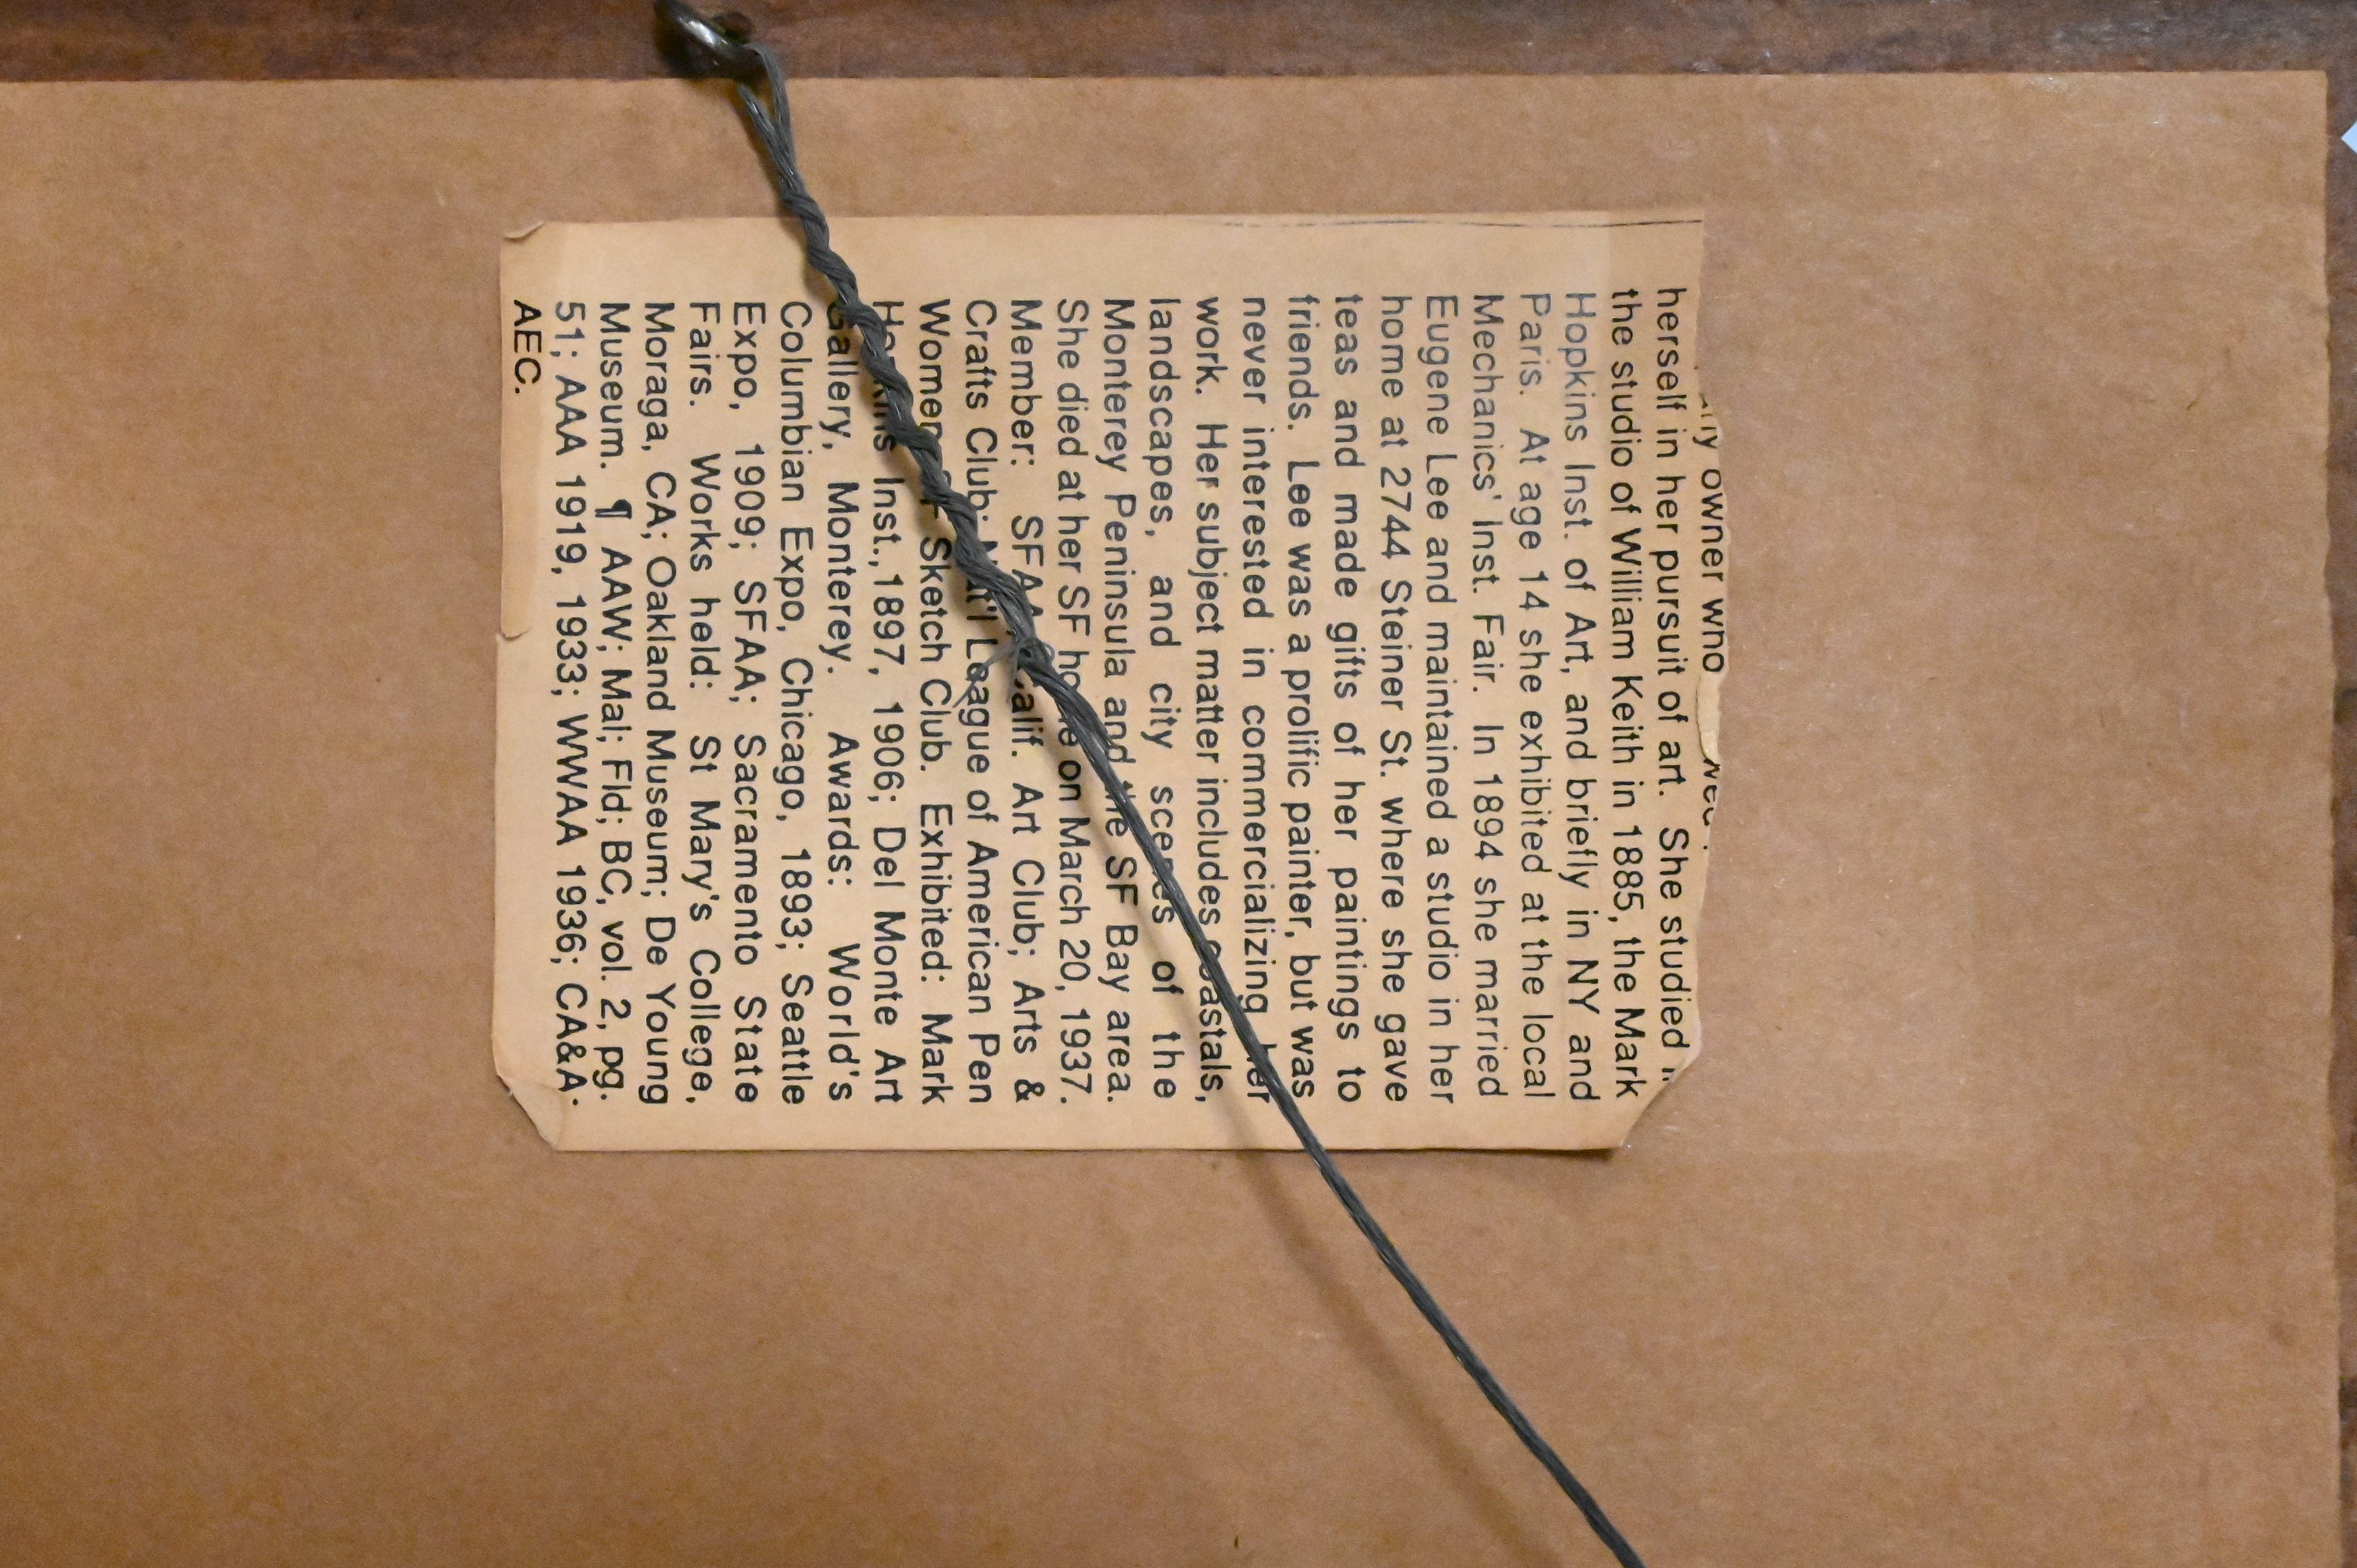 owner who
herself in her pursuit of art. She studied
the studio of William Keith in 1885, the Mark
Hopkins Inst. of Art, and briefly in NY and
Paris. At age 14 she exhibited at the local
Mechanics' Inst. Fair. In 1894 she married
Eugene Lee and maintained a studio in her
home at 2744 Steiner St. where she gave
teas and made gifts of her paintings to
friends. Lee was a prolific painter, but was
never interested in commercializing her
work. Her subject matter includes coastals,
landscapes, and city scenes of the
Monterey Peninsula and the SF Bay area.
She died at her SF home on March 20, 1937.
Member: SFAA; Calif. Art Club; Arts &
Crafts Club; Nat'l League of American Pen
Women; Sketch Club. Exhibited: Mark
Hopkins Inst.,1897, 1906; Del Monte Art
Gallery, Monterey. Awards: World's
Columbian Expo, Chicago, 1893; Seattle
Expo, 1909; SFAA; Sacramento State
Fairs. Works held: St Mary's College,
Moraga, CA; Oakland Museum; De Young
Museum. ¶ AAW; Mal; Fld; BC, vol. 2, pg.
51; AAA 1919, 1933; WWAA 1936; CA&A;
AEC.